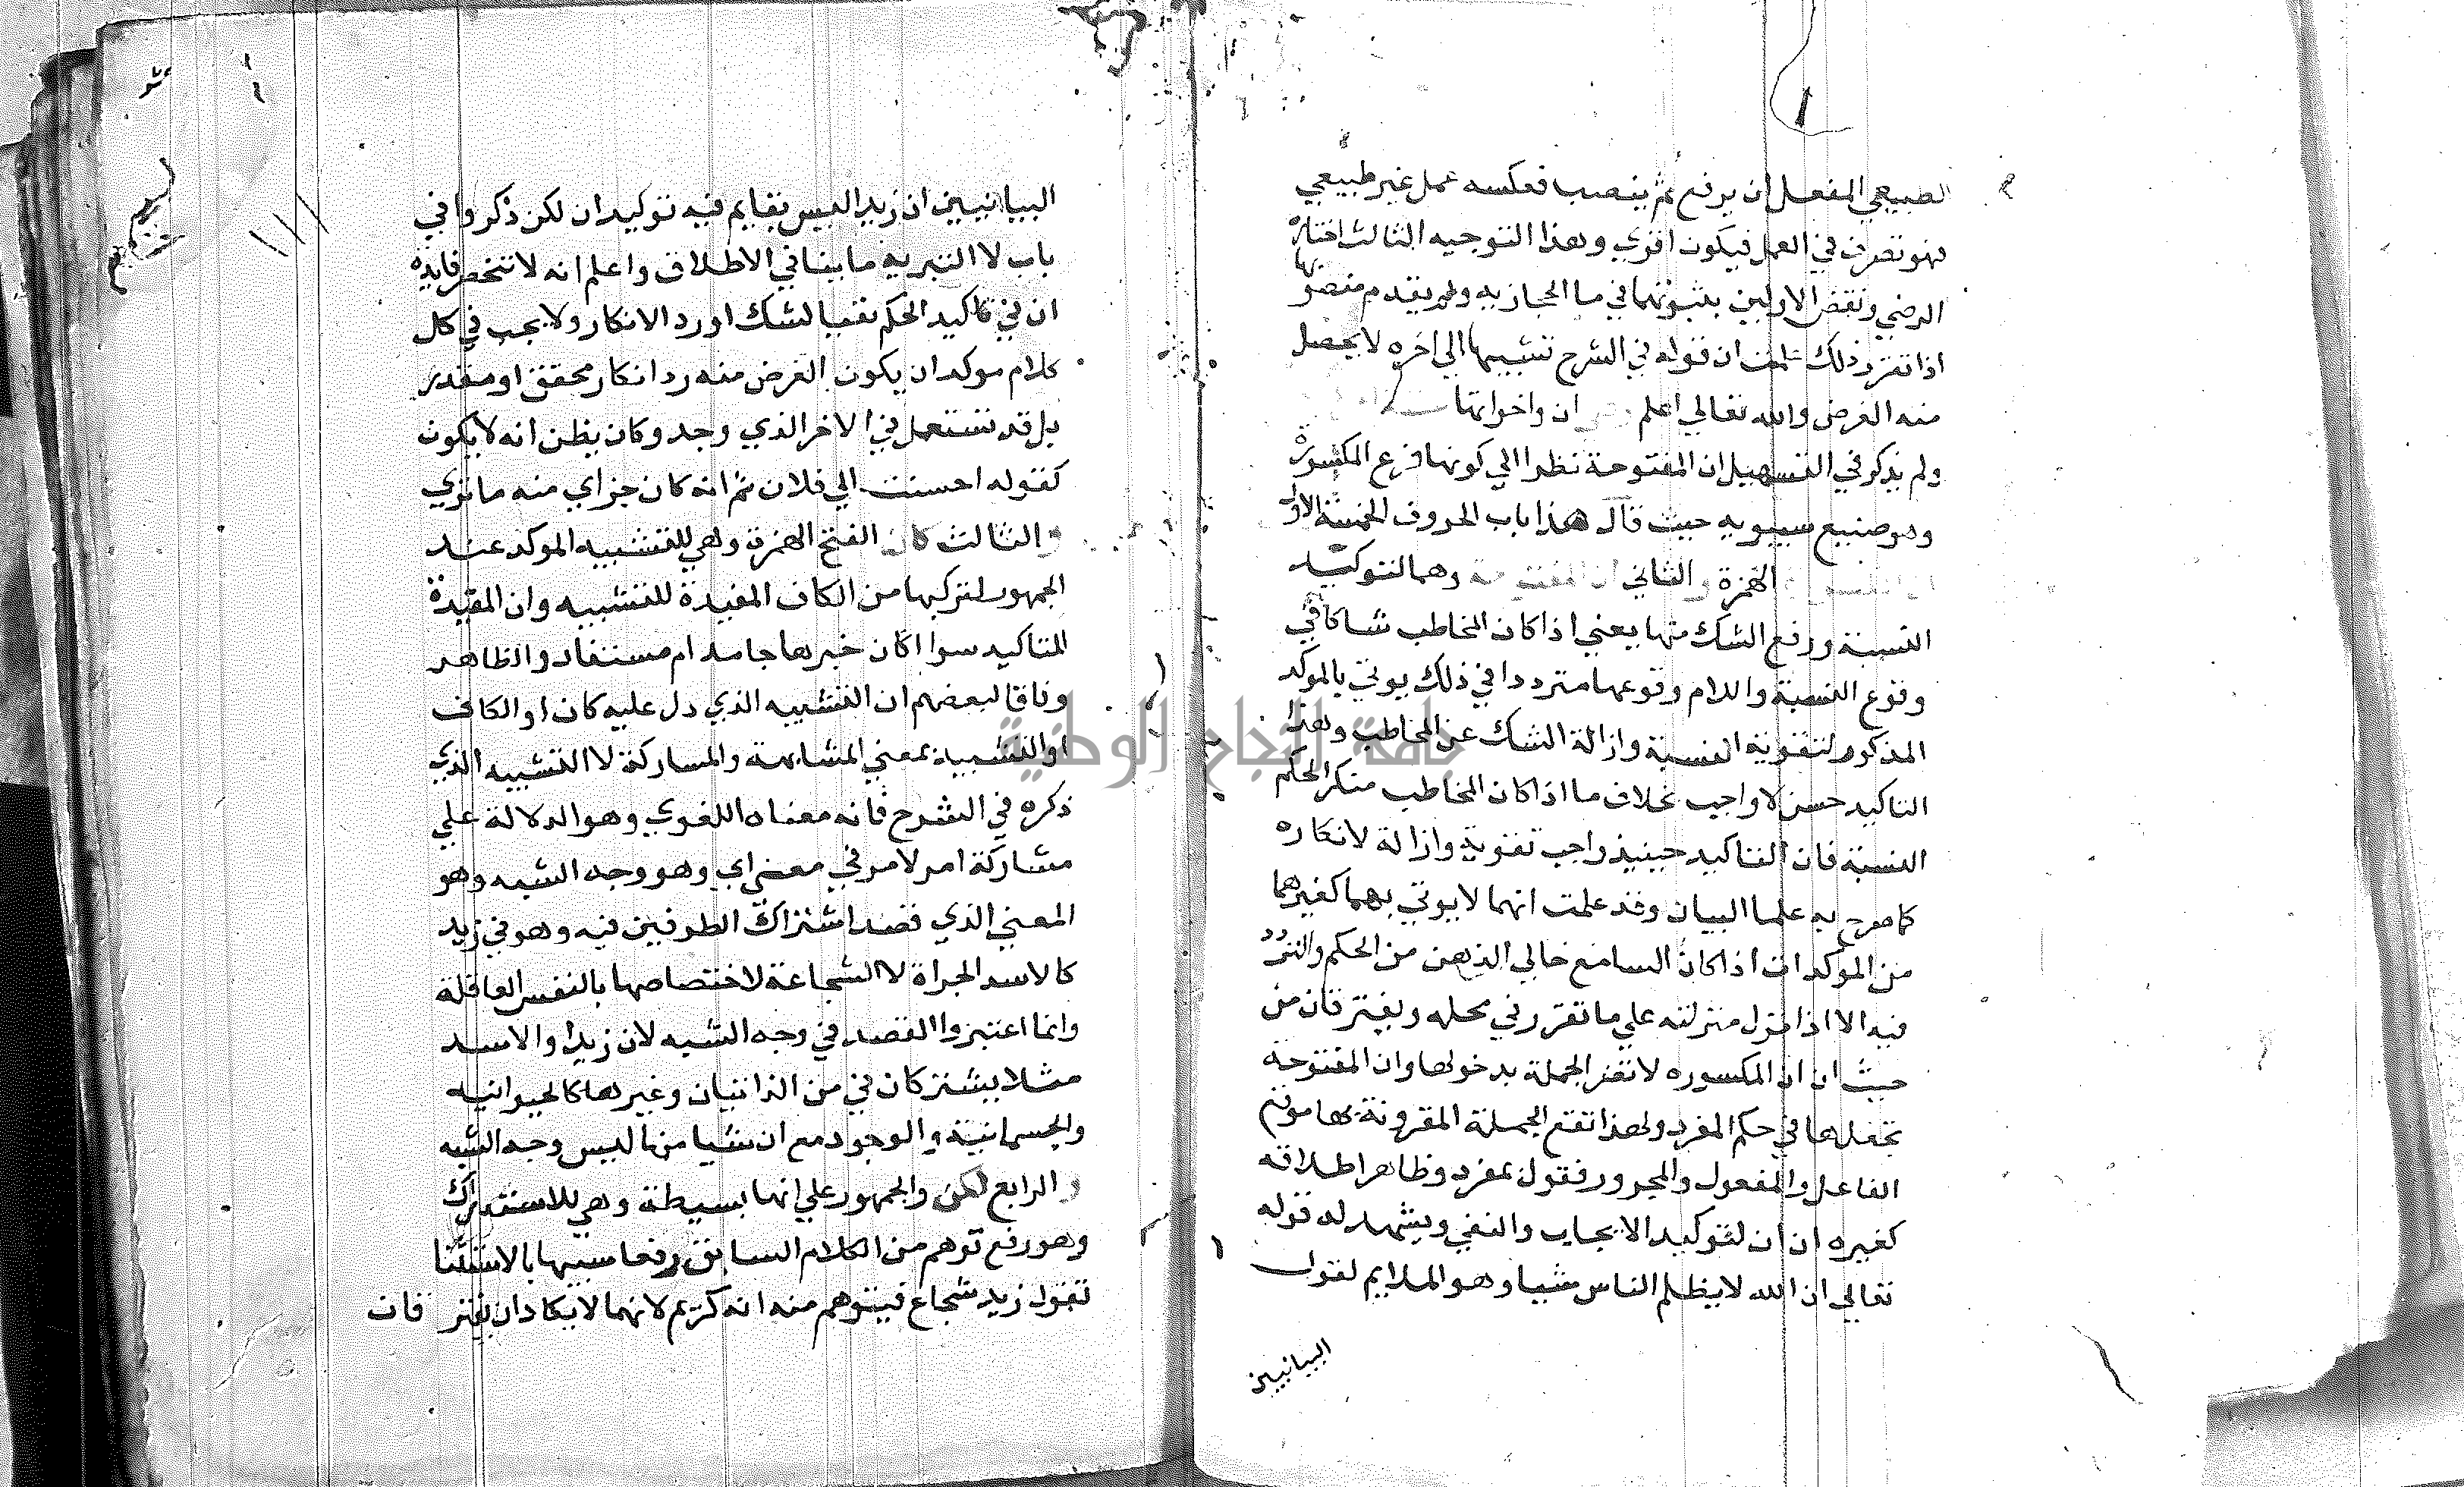 الطبيعي المفعل ان يرفع ثم ينصب فعكسه عمل غير طبيعي
فهو تصرف في العمل فيكون اقوي وهذا التوجيه الثالث اختاره
الرضي ونقض الاولين بثبوتهما في ما الحجازيه ولم يقدم منصوبها
اذا تقرر ذلك علمت ان قوله في الشرح تشبيها الي اخره لا يحصل
منه الغرض والله تعالي اعلم ان واخواتها
ولم يذكر في التسهيل ان المفتوحة نظرا الي كونها فرع المكسورة
وهو صنيع سيبويه حيث قال هذا باب الحروف الخمسة الاول
الهمزة والثاني ان المفتوحة وهما لتوكيد
النسبة ورفع الشك منها يعني اذا كان المخاطب شاكا في
وقوع النسبة واللام وقوعها مترددا في ذلك يوتي بالموكد
المذكور لتقوية النسبة وازالة الشك عن المخاطب وهذا
التاكيد حسن لا واجب بخلاف ما اذا كان المخاطب منكر الحكم
النسبة فان التاكيد حينيذ واجب تقوية وازالة لانكاره
كما صرح به علما البيان وقد علمت انهما لا يوتي بهما كغيرهما
من الموكدات اذا كان السامع خالي الذهن من الحكم والتردد
فيه الا اذا نزل منزلته علي ما تقرر في محله ويفترقان من
حيث ان ان المكسوره لا تغير الجملة بدخولها وان المفتوحة
تجعلها في حكم المفرد ولهذا تقع الجملة المقرونة بها موقع
الفاعل والمفعول والمجرور فتقول بمفرد وظاهر اطلاقه
كغيره ان ان لتوكيد الايجاب والنفي ويشهد له قوله
تعالي ان الله لا يظلم الناس شيا وهو الملايم لقول
البيانيين
البيانيين ان زيدا ليس بقايم فيه توكيدان لكن ذكروا في
باب لا التبريه ما ينافي الاطلاق واعلم انه لا تنحصر فايدة
ان في تاكيد الحكم نفيا لشك او رد الانكار ولا يجب في كل
كلام موكد ان يكون الغرض منه رد انكار محقق او مقدر
بل قد تستعمل في الاخر الذي وجد وكان يظن انه لا يكون
كقوله احسنت الي فلان ثم انه كان جزاي منه ما تري
والثالث كان الفتح الهمزة وهي للتشبيه الموكد عند
الجمهور لتركبها من الكاف المفيدة للتشبيه وان المفيدة
للتاكيد سوا اكان خبرها جامد ام مستفاد والظاهر
وفاقا لبعضهم ان التشبيه الذي دل عليه كان او الكاف
او التشبيه بمعني المشابهة والمشاركة لا التشبيه الذي
ذكره في الشرح فانه معناه اللغوي وهو الدلالة علي
مشاركة امر لامر في معني اي وهو وجه الشبه وهو
المعني الذي قصد اشتراك الطرفين فيه وهو في زيد
كالاسد الجراة لا الشجاعة لاختصاصها بالنفس العاقلة
وانما اعتبروا القصد في وجه الشبه لان زيدا والاسد
مثلا يشتركان في من الذاتيان وغيرها كالحيوانيه
والجسمانية والوجود مع ان شيا منها ليس وجه الشبه
والرابع لكن والجمهور علي انها بسيطة وهي للاستدراك
وهو رفع توهم من الكلام السابق رفعا شبيها بالاستثنا
تقول زيد شجاع فيتوهم منه انه كريم لانهما لا يكادان يفتر قان
جامعة النجاح الوطنية